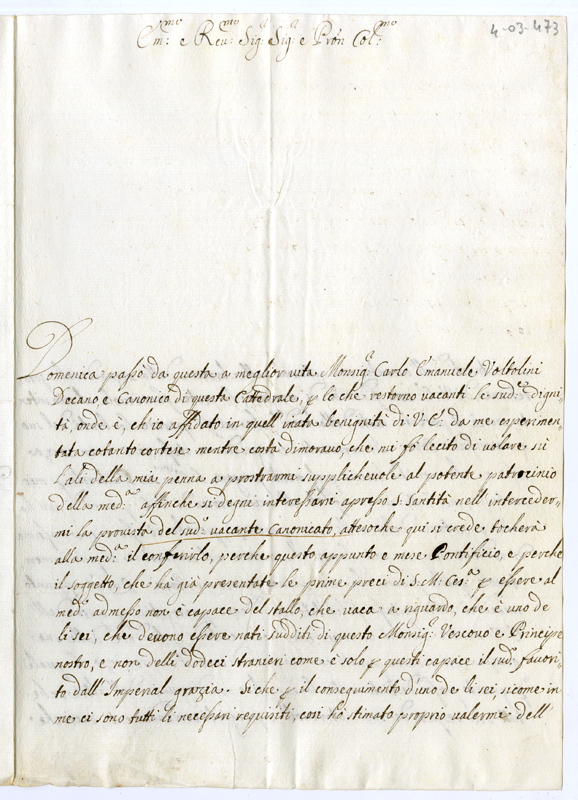 4-03-473
Em.mo e Rev.mo Sig.r Sig.r e Pron Col.mo
Domenica passò da questa a meglior vita Monsig.r Carlo Emanuele Voltolini
Decano e Canonico di questa Cattedrale, p lo che restorno vacanti le sud.e digni-
tà, onde è, ch'io affidato in quell'inata benignità di V: E: da me esperimen-
tata cotanto cortese mentre costà dimoravo, che mi fo lecito di volare sù
l'ali della mia penna a prostrarmi supplichevole al potente patrocinio
della med.a affinche si degni interessarsi apresso S. Santità nell'interceder-
mi la provista del sud.o vacante Canonicato, attesoche qui si crede toccherà
alla med.a il conferirlo, perche questo appunto e mese Pontificio, e perche
il soggetto, che hà già presentate le prime preci di S: M: Ces.a p essere al
med.o admesso non è capace del stallo, che vaca a riguardo, che è uno de
li sei, che devono essere nati sudditi di questo Monsig.r Vescovo e Principe
nostro, e non delli dodeci stranieri come è solo p questi capace il sud.o favori-
to dall'Imperial grazia. Si che p il conseguimento d'uno de li sei sicome in
me ci sono tutti li necessari requisiti, così hò stimato proprio valermi dell'